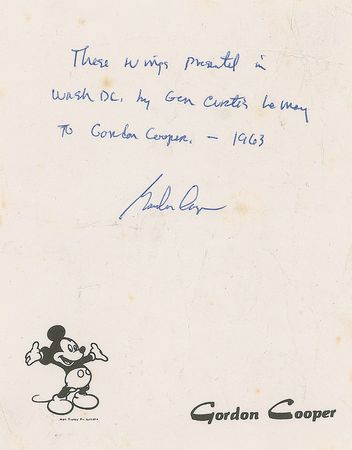 These wings presented in
Wash DC. by Gen Curtis LeMay
To Gordon Cooper. — 1963
Gordon Cooper
Gordon Cooper